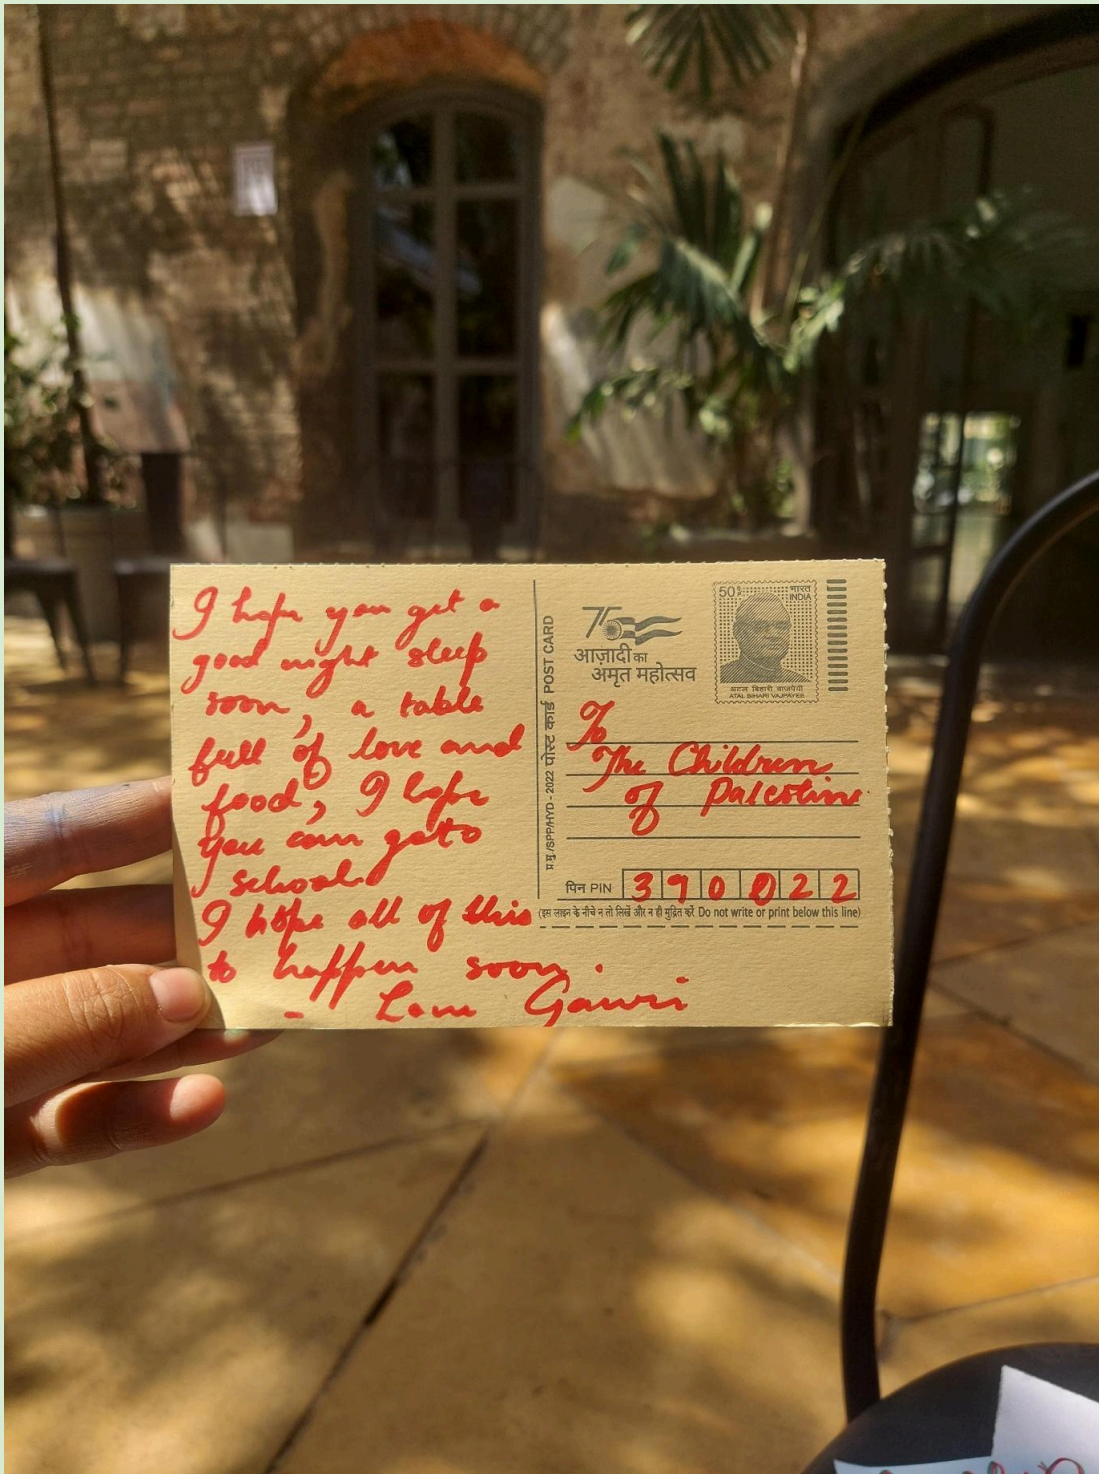 I hope you get a
good night sleep
soon, a table
full of love and
food, I hope
you can go to
school.
I hope all of this
to happen soon.
- Love Gauri
POST CARD
पोस्ट कार्ड
/SPP/HYD - 2022
75
आज़ादी का
अमृत महोत्सव
50
भारत
INDIA
अटल बिहारी वाजपेयी
ATAL BIHARI VAJPAYEE
To
The Children
of Palestine
पिन PIN 390022
(इस लाइन के नीचे न तो लिखें और न ही मुद्रित करें Do not write or print below this line)